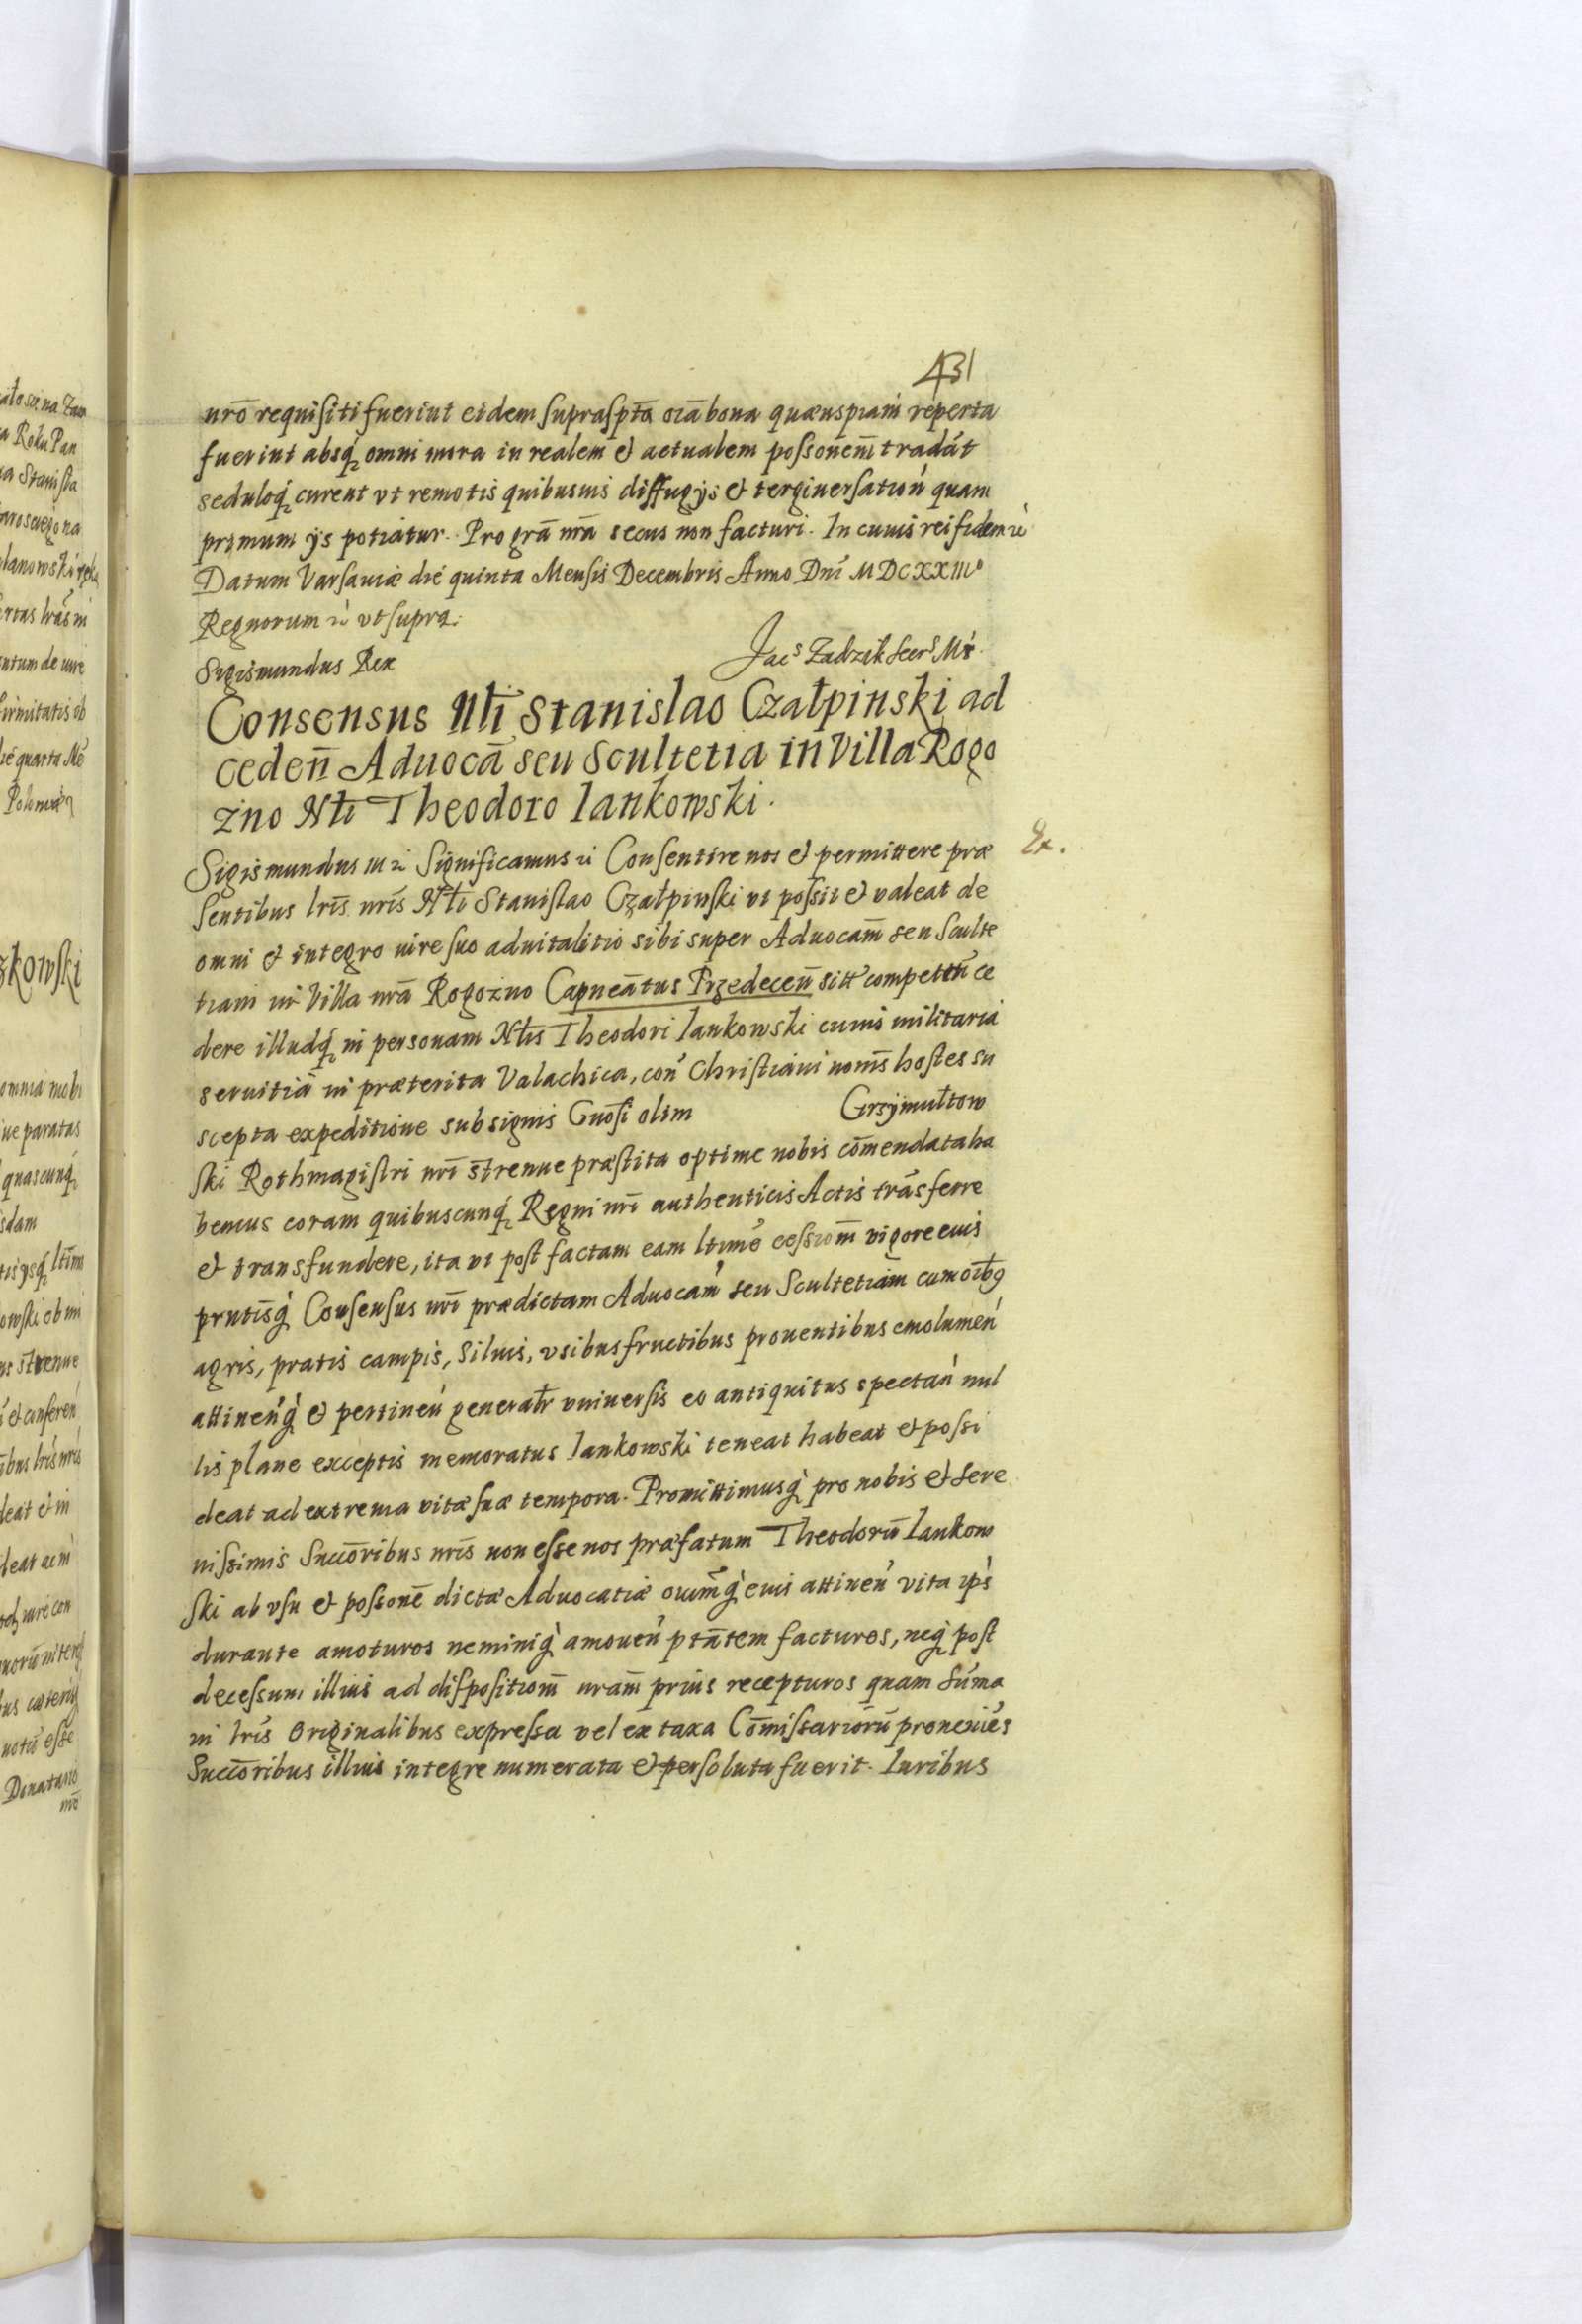 431
nrõ requisiti fuerint eidem suprasptã oiã bona quæuspiam reperta
fuerint absq́ omni mora in realem et actualem possonem̃ tradát
seduloq́ curent vt remotis quibusuis diffugÿs et terginersatioń quam
primum ÿs potiatur. Pro grã nrã secus non facturi. In cuius rei fidem
Datum Varsauiæ die quinta Mensis Decembris Anno Dnĩ MDCXXIIIº
Regnorum vt supra.
Sigismundus Rex
Jacs Zadzik Secrs
Consensus Nłi Stanislao Czałpinski ad
cedeñ Aduocã seu Scultetia in Villa Rogo
zno Nłi Theodoro Iankowski.
Ex.
Sigismundus III Significamus Consentire nos et permittere præ
sentibus lrĩs nrĩs Nłi Stanislao Czałpinski vt possit et valeat de
omni et integro iure suo aduitalitio sibi super Aduocam̃ seu Sculte
tiam in Villa nrã Rogoźno Capneãtus Przedeceñ sitt compettñ ce
dere illudq́ in personam Nłis Theodori Iankowski cuius militaria
seruitia in præterita Valachica, coñ Christiani nomĩs hostes su
scepta expeditione sub signis Gnosi olim Grzÿmułtow
ski Rothmagistri nrĩ strenue præstita optime nobis cõmendata ha
bemus coram quibuscunq́ Regni nrĩ authenticis Actis trãsferre
et transfundere, ita vt post factam eam ltimé cessiom̃ vigore eius
pntisq́ Consensus nrĩ prædictam Aduocam̃ seu Scultetiam cum oĩbꝰ
agris, pratis campis, Siluis, vsibus fructibus prouentibus emolumeń
attineńq́ et pertineń generałr vniuersis eo antiquitus spectań nul
lis plane exceptis memoratus Iankowski teneat habeat et possi
deat ad extrema vitæ suæ tempora. Promittimusq́ pro nobis et Sere
nissimis Succõribus nrĩs non esse nos præfatum Theodorũ Iankow
ski ab vsu et possonẽ dictæ Aduocatiæ oium̃q́ eius attineń vita ips̀
durante amoturos neminiq́ amoueń ptãtem facturos, neq́ post
decessum illius ad dispositiom̃ nram̃ prius recepturos quam súma
in lrís Originalibus expressa vel ex taxa Cõmissariorũ proueniés
Succõribus illius integre numerata et persoluta fuerit. Iuribus